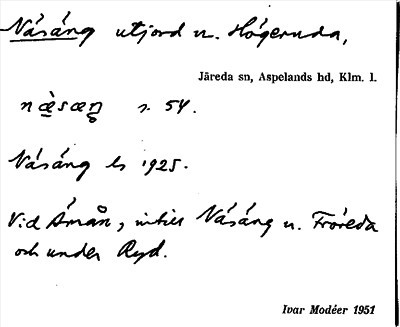 Näsäng utjord u. Högeruda,
Järeda sn, Aspelands hd, Klm. l.
s. 54.
Näsäng ls 1925.
Vid Åmån, intill Näsäng u. Fröreda
och under Ryd.
Ivar Modéer 1951